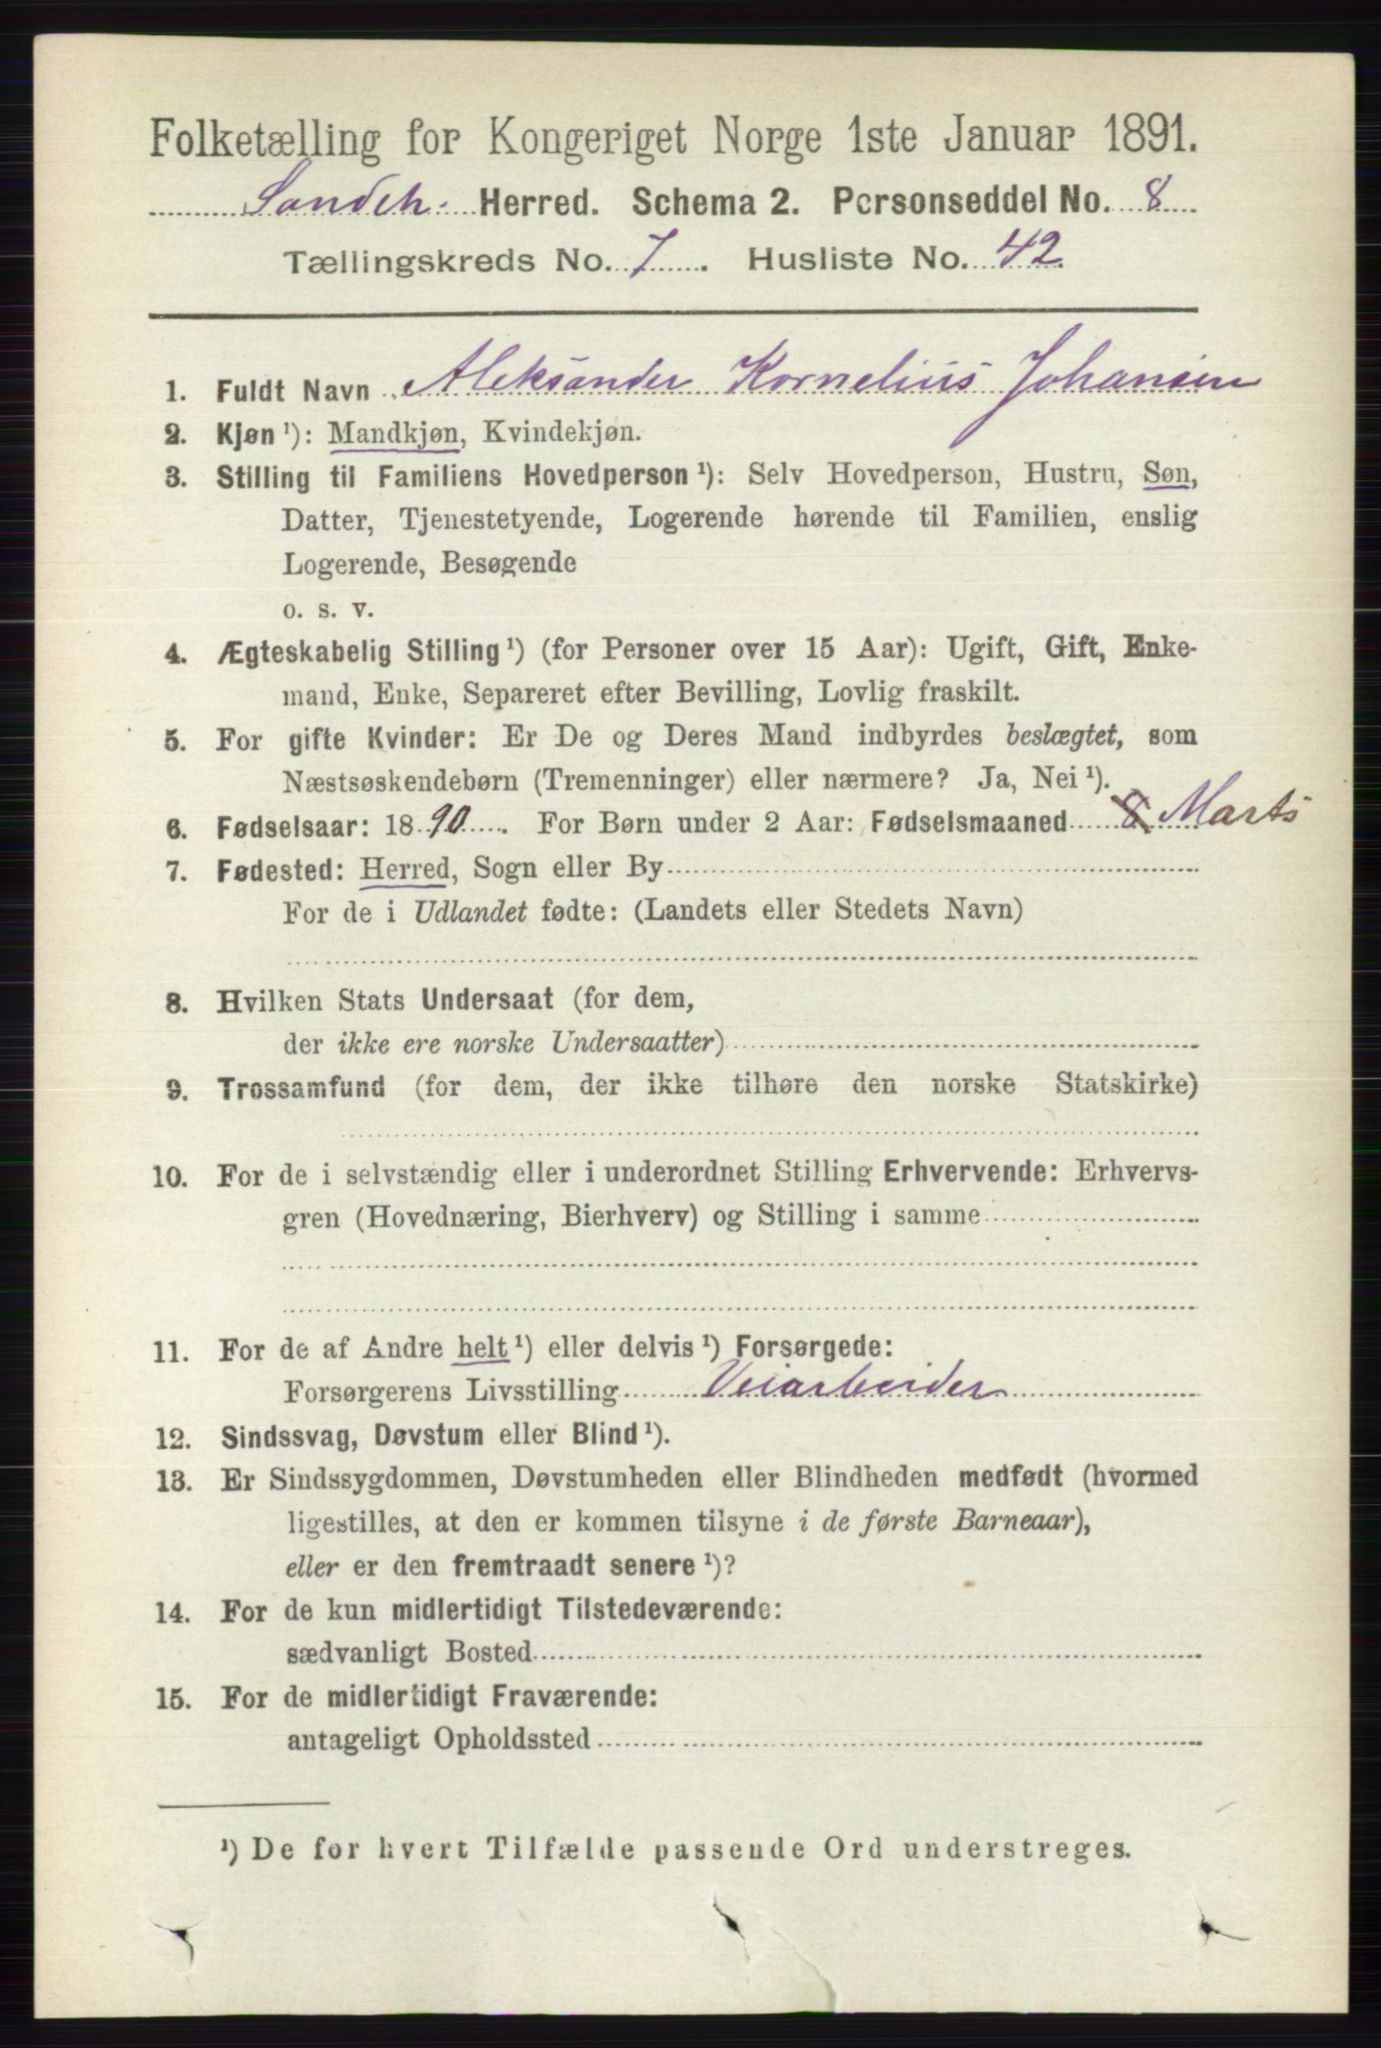 Folketælling for Kongeriget Norge 1ste Januar 1891.
Sandeh. Herred. Schema 2. Personseddel No. 8
Tællingskreds No. 7. Husliste No. 42.
1. Fuldt Navn Aleksander Kornelius Johansen
2. Kjøn ¹): Mandkjøn, Kvindekjøn.
3. Stilling til Familiens Hovedperson ¹): Selv Hovedperson, Hustru, Søn,
Datter, Tjenestetyende, Logerende hørende til Familien, enslig
Logerende, Besøgende
o. s. v.
4. Ægteskabelig Stilling ¹) (for Personer over 15 Aar): Ugift, Gift, Enke-
mand, Enke, Separeret efter Bevilling, Lovlig fraskilt.
5. For gifte Kvinder: Er De og Deres Mand indbyrdes beslægtet, som
Næstsøskendebørn (Tremenninger) eller nærmere? Ja, Nei ¹).
6. Fødselsaar: 1890. For Børn under 2 Aar: Fødselsmaaned 8 Marts
7. Fødested: Herred, Sogn eller By
For de i Udlandet fødte: (Landets eller Stedets Navn)
8. Hvilken Stats Undersaat (for dem,
der ikke ere norske Undersaatter)
9. Trossamfund (for dem, der ikke tilhøre den norske Statskirke)
10. For de i selvstændig eller i underordnet Stilling Erhvervende: Erhvervs-
gren (Hovednæring, Bierhverv) og Stilling i samme
11. For de af Andre helt ¹) eller delvis ¹) Forsørgede:
Forsørgerens Livsstilling Veiarbeider
12. Sindssvag, Døvstum eller Blind ¹).
13. Er Sindssygdommen, Døvstumheden eller Blindheden medfødt (hvormed
ligestilles, at den er kommen tilsyne i de første Barneaar),
eller er den fremtraadt senere ¹)?
14. For de kun midlertidigt Tilstedeværende:
sædvanligt Bosted
15. For de midlertidigt Fraværende:
antageligt Opholdssted
¹) De for hvert Tilfælde passende Ord understreges.